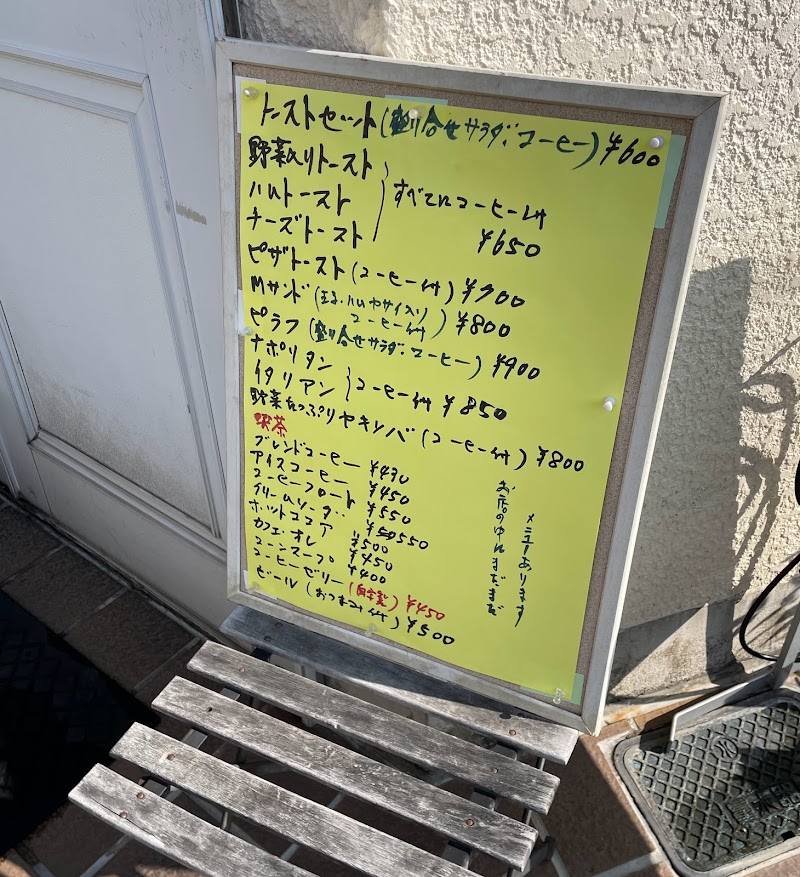 トーストセット(盛り合せサラダ.コーヒー)¥600
野菜入りトースト
ハムトースト
チーズトースト
すべてにコーヒー付
¥650
ピザトースト(コーヒー付)¥700
Mサンド(玉子.ハムヤサイ入り
コーヒー付)¥800
ピラフ(盛り合せサラダ.コーヒー)¥900
ナポリタン
イタリアン
コーヒー付 ¥850
野菜たっぷりヤキソバ(コーヒー付)¥800
喫茶
ブレンドコーヒー ¥430
アイスコーヒー ¥450
コーヒーフロート ¥550
クリームソーダ ¥550
ホットココア ¥500
カフェオレ ¥450
コーンスープ ¥400
コーヒーゼリー(自家製)¥450
ビール(おつまみ付)¥500
お店の中にまだまだ
メニューあります